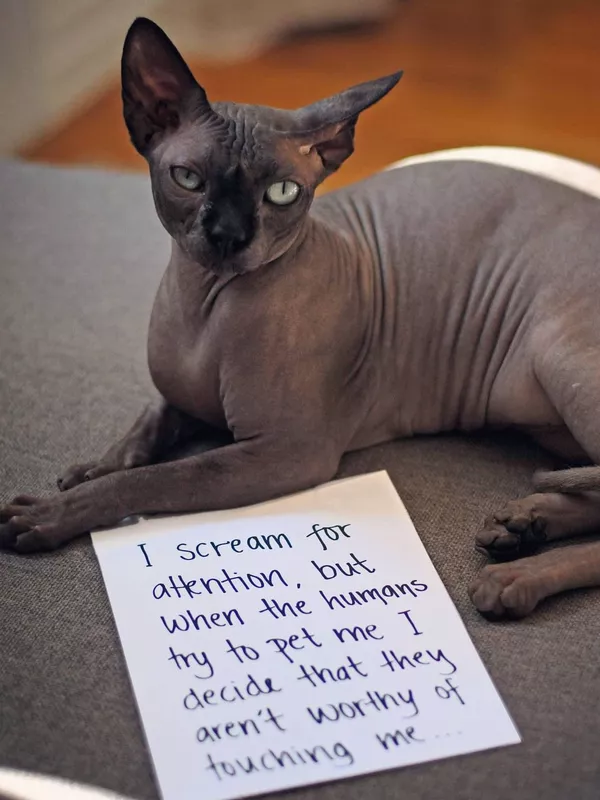 I scream for
attention, but
when the humans
try to pet me I
decide that they
aren't worthy of
touching me...